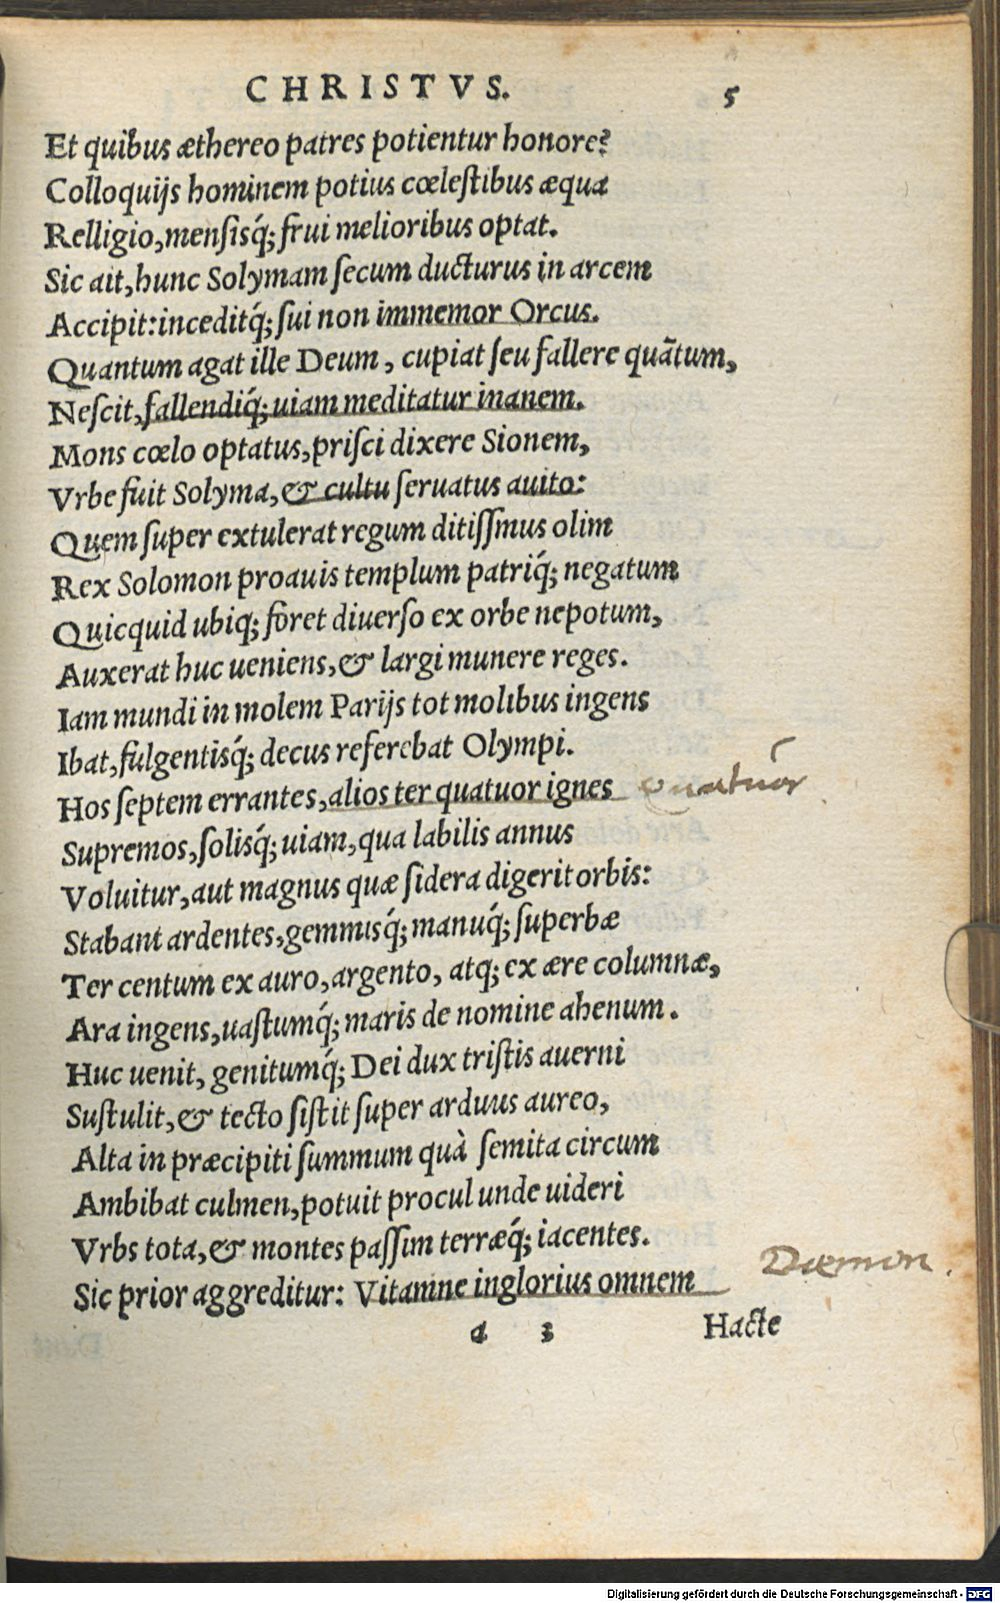 CHRISTVS. 5
Et quibus æthereo patres potientur honore?
Colloquijs hominem potius cœlestibus æqua
Relligio, mensisq́; frui melioribus optat.
Sic ait, hunc Solymam secum ducturus in arcem
Accipit: inceditq́; sui non immemor Orcus.
Quantum agat ille Deum, cupiat seu fallere quātum,
Nescit, fallendiq́; uiam meditatur inanem.
Mons cœlo optatus, prisci dixere Sionem,
Vrbe fuit Solyma, & cultu seruatus auito:
Quem super extulerat regum ditissmus olim
Rex Solomon proauis templum patriq́; negatum
Quicquid ubiq; foret diuerso ex orbe nepotum,
Auxerat huc ueniens, & largi munere reges.
Iam mundi in molem Parijs tot molibus ingens
Ibat, fulgentisq́; decus referebat Olympi.
Hos septem errantes, alios ter quatuor ignes Quatuor
Supremos, solisq́; uiam, qua labilis annus
Voluitur, aut magnus quæ sidera digerit orbis:
Stabant ardentes, gemmisq́; manuq́; superbæ
Ter centum ex auro, argento, atq; ex ære columnæ,
Ara ingens, uastumq́; maris de nomine ahenum.
Huc uenit, genitumq́; Dei dux tristis auerni
Sustulit, & tecto sistit super arduus aureo,
Alta in præcipiti summum quà semita circum
Ambibat culmen, potuit procul unde uideri
Vrbs tota, & montes passim terræq́; iacentes.
Sic prior aggreditur: Vitamne inglorius omnem Dæmon.
a 3 Hacte
Digitalisierung gefördert durch die Deutsche Forschungsgemeinschaft - DFG